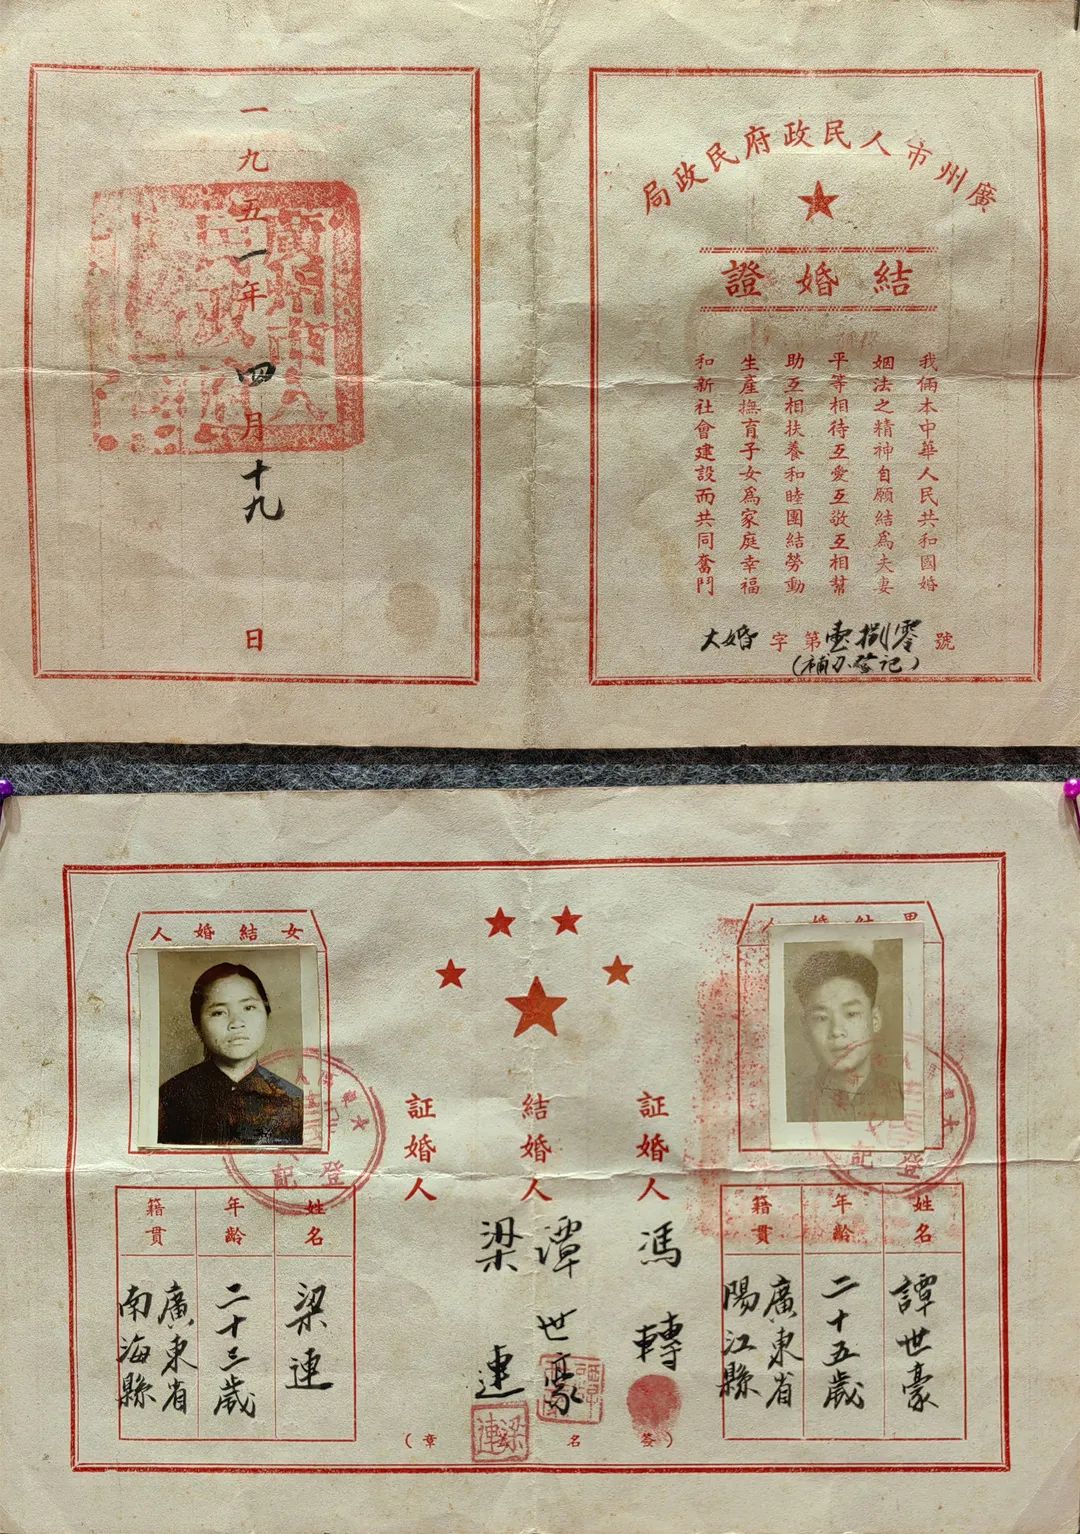 廣州市人民政府民政局
結婚證
我倆本中華人民共和國婚
姻法之精神自願結爲夫妻
平等相待互愛互敬互相幫
助互相扶養和睦團結勞動
生產撫育子女爲家庭幸福
和新社會建設而共同奮鬥
大婚字第壹捌零號
(補办登记)
一九五一年四月十九日
男結婚人
姓名
譚世豪
年齡
二十五歲
籍貫
廣東省
陽江縣
証婚人
馮轉
結婚人
譚世豪
梁連
証婚人
(簽名蓋章)
梁連
登記
登記
女結婚人
姓名
梁連
年齡
二十三歲
籍貫
廣東省
南海縣